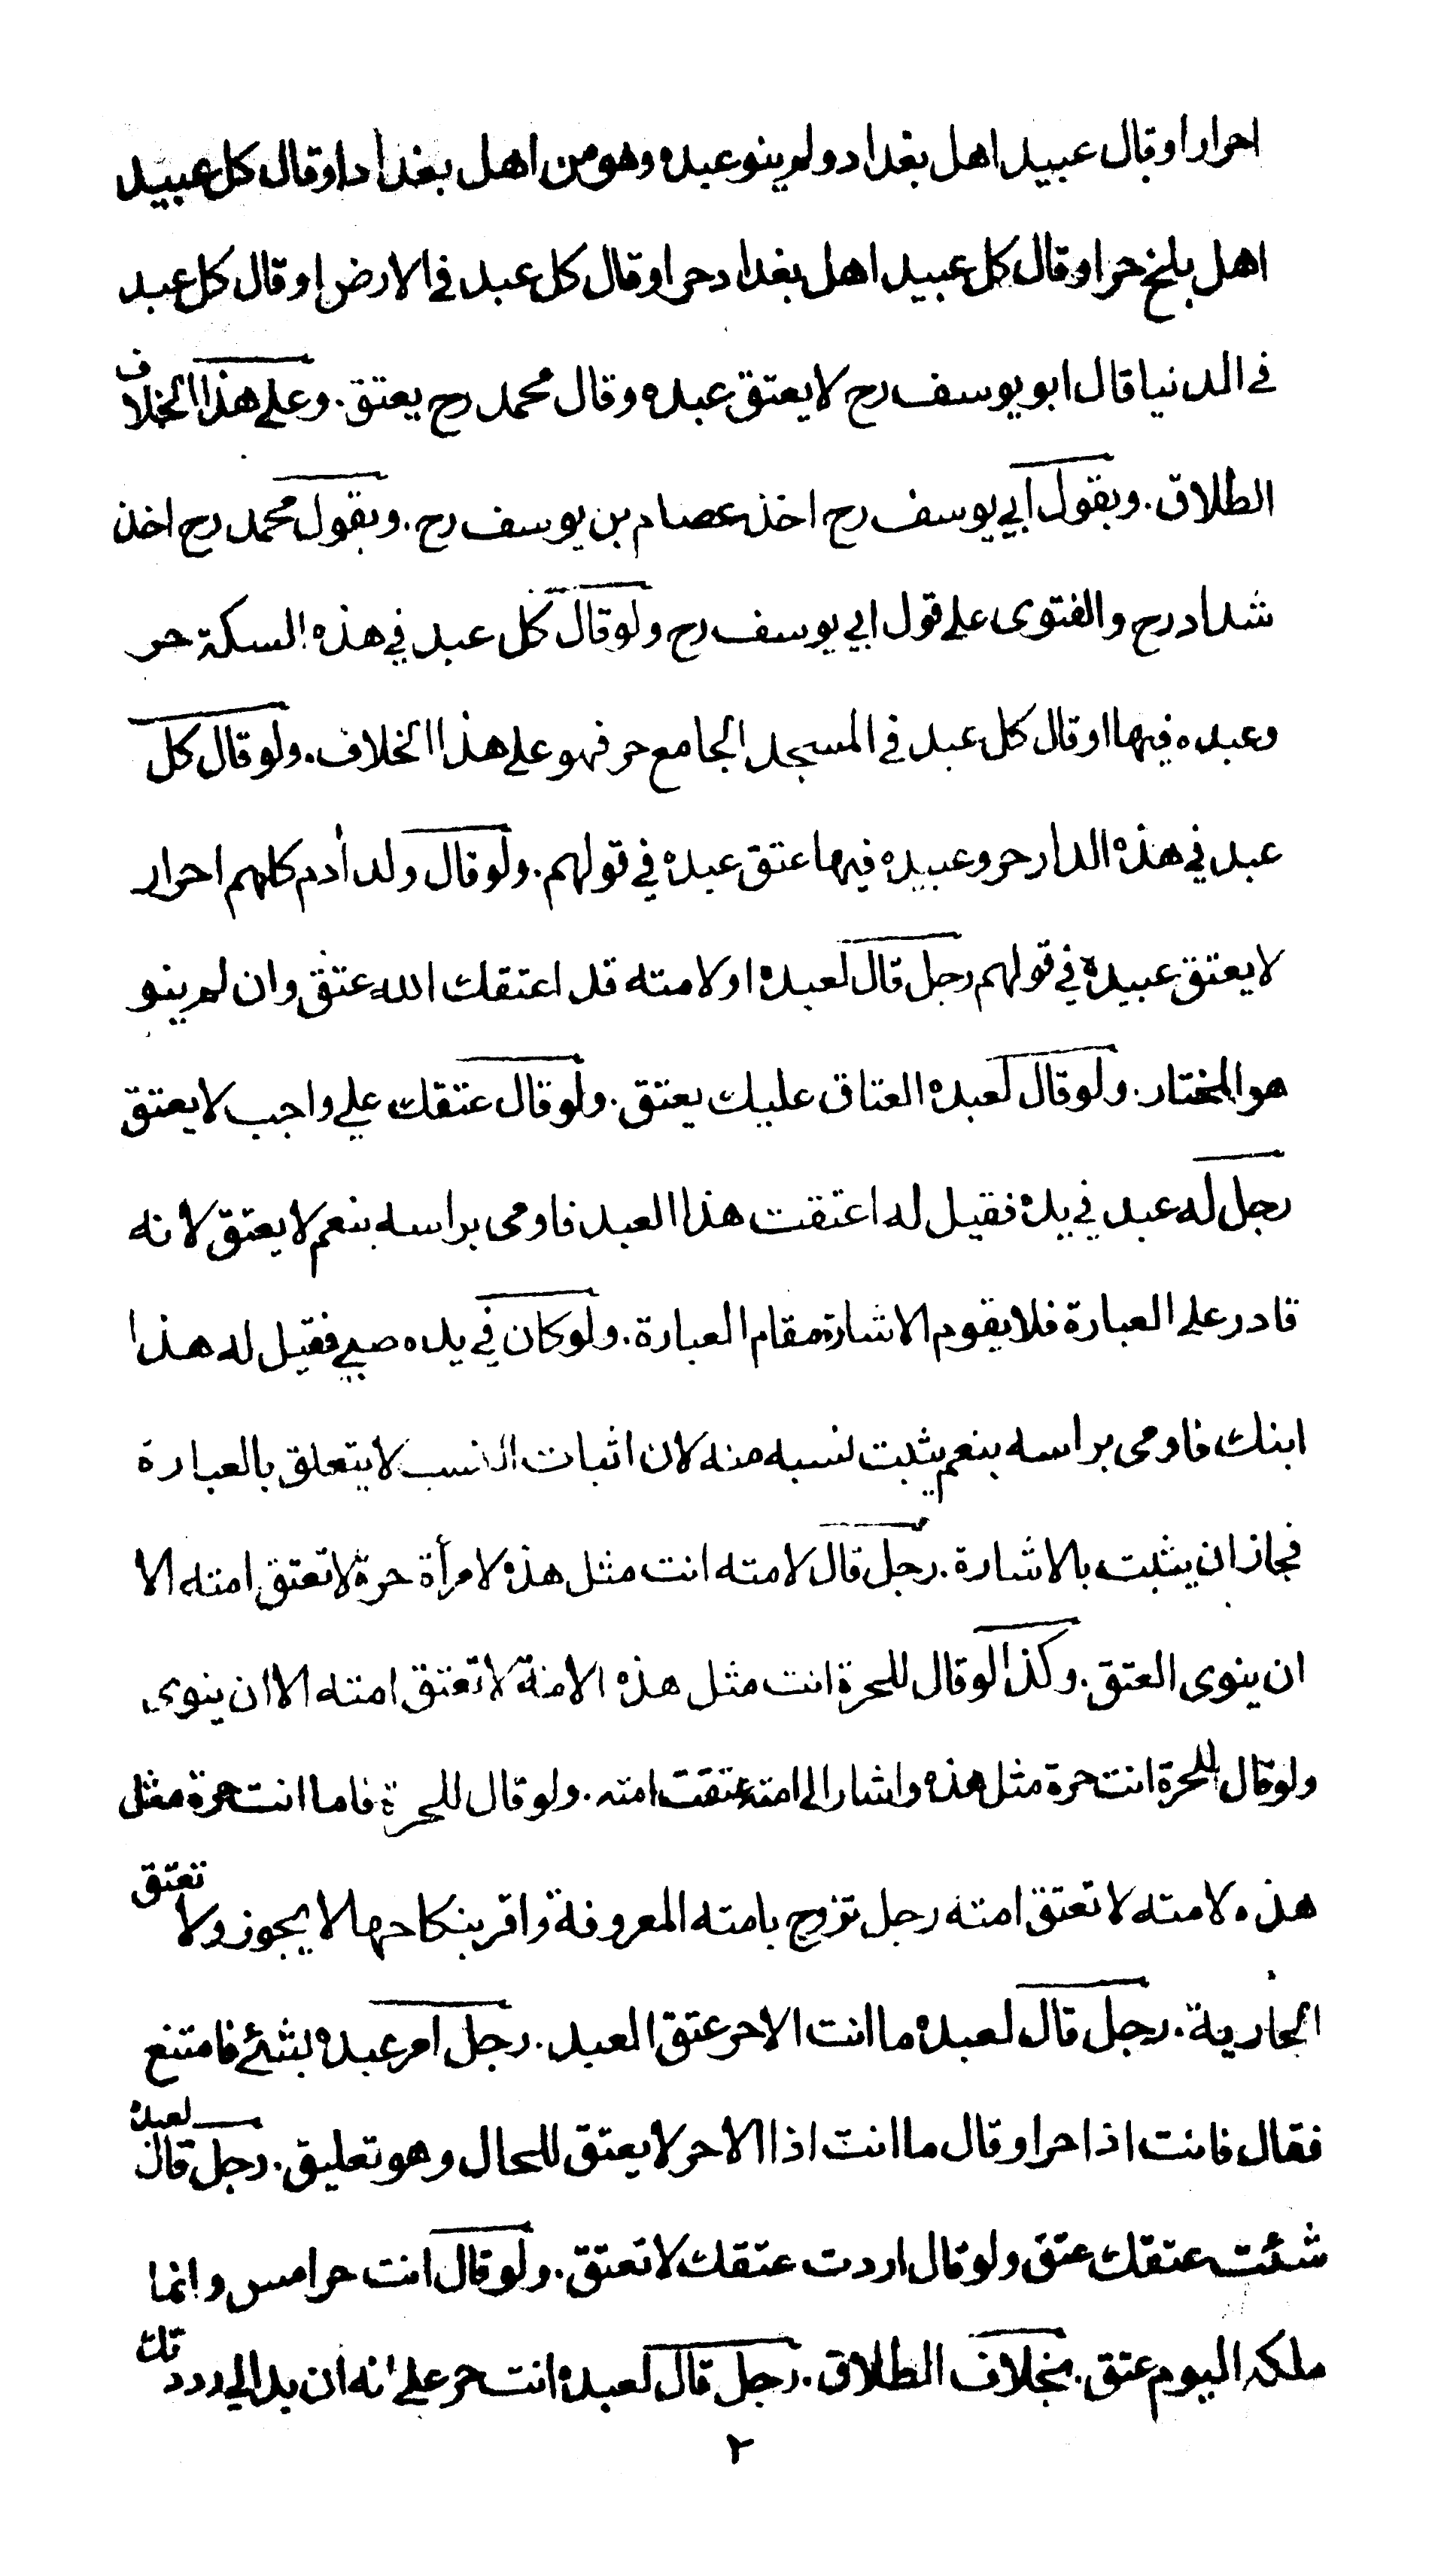 احرار او قال عبيد اهل بغداد ولم ينو عبده وهو من اهل بغداد او قال كل عبيد
اهل بلخ حر او قال كل عبيد اهل بغداد حر او قال كل عبد في الارض او قال كل عبد
في الدنيا قال ابو يوسف رح لا يعتق عبده وقال محمد رح يعتق. وعلى هذا الخلاف
الطلاق. وبقول ابي يوسف رح اخذ عصام بن يوسف رح. وبقول محمد رح اخذ
شداد رح والفتوى على قول ابي يوسف رح ولو قال كل عبد في هذه السكة حر
وعبده فيها او قال كل عبد في المسجد الجامع حر فهو على هذا الخلاف. ولو قال كل
عبد في هذه الدار حر وعبيده فيها عتق عبده في قولهم. ولو قال ولد أدم كلهم احرار
لا يعتق عبيده في قولهم رجل قال لعبده او لامته قد اعتقك الله عتق وان لم ينو
هو المختار. ولو قال لعبده العتاق عليك يعتق. ولو قال عتقك علي واجب لا يعتق
رجل له عبد في يده فقيل له اعتقت هذا العبد فاومى براسه بنعم لا يعتق لانه
قادر على العبارة فلا يقوم الاشارة مقام العبارة. ولو كان في يده صبي فقيل له هذا
ابنك فاومى براسه بنعم يثبت نسبه منه لان اثبات النسب لا يتعلق بالعبارة
فجاز ان يثبت بالاشارة. رجل قال لامته انت مثل هذه لامرأة حرة لا تعتق امته الا
ان ينوى العتق. وكذا لو قال للحرة انت مثل هذه الامة لا تعتق امته الا ان ينوى
ولو قال للحرة انت حرة مثل هذه واشار الى امته عتقت امته. ولو قال للحرة فاما انت حرة مثل
هذه لامته لا تعتق امته رجل تزوج بامته المعروفة واقر بنكاحها لا يجوز ولا تعتق
الجارية. رجل قال لعبده ما انت الا حر عتق العبد. رجل امر عبده بشئ فامتنع
فقال فانت اذا حر او قال ما انت اذا الا حر لا يعتق للحال وهو تعليق. رجل قال لعبده
شئت عتقك عتق ولو قال اردت عتقك لا تعتق. ولو قال انت حر امس وانما
ملكه اليوم عتق. بخلاف الطلاق. رجل قال لعبده انت حر على انه ان بدا لي رددتك
٢